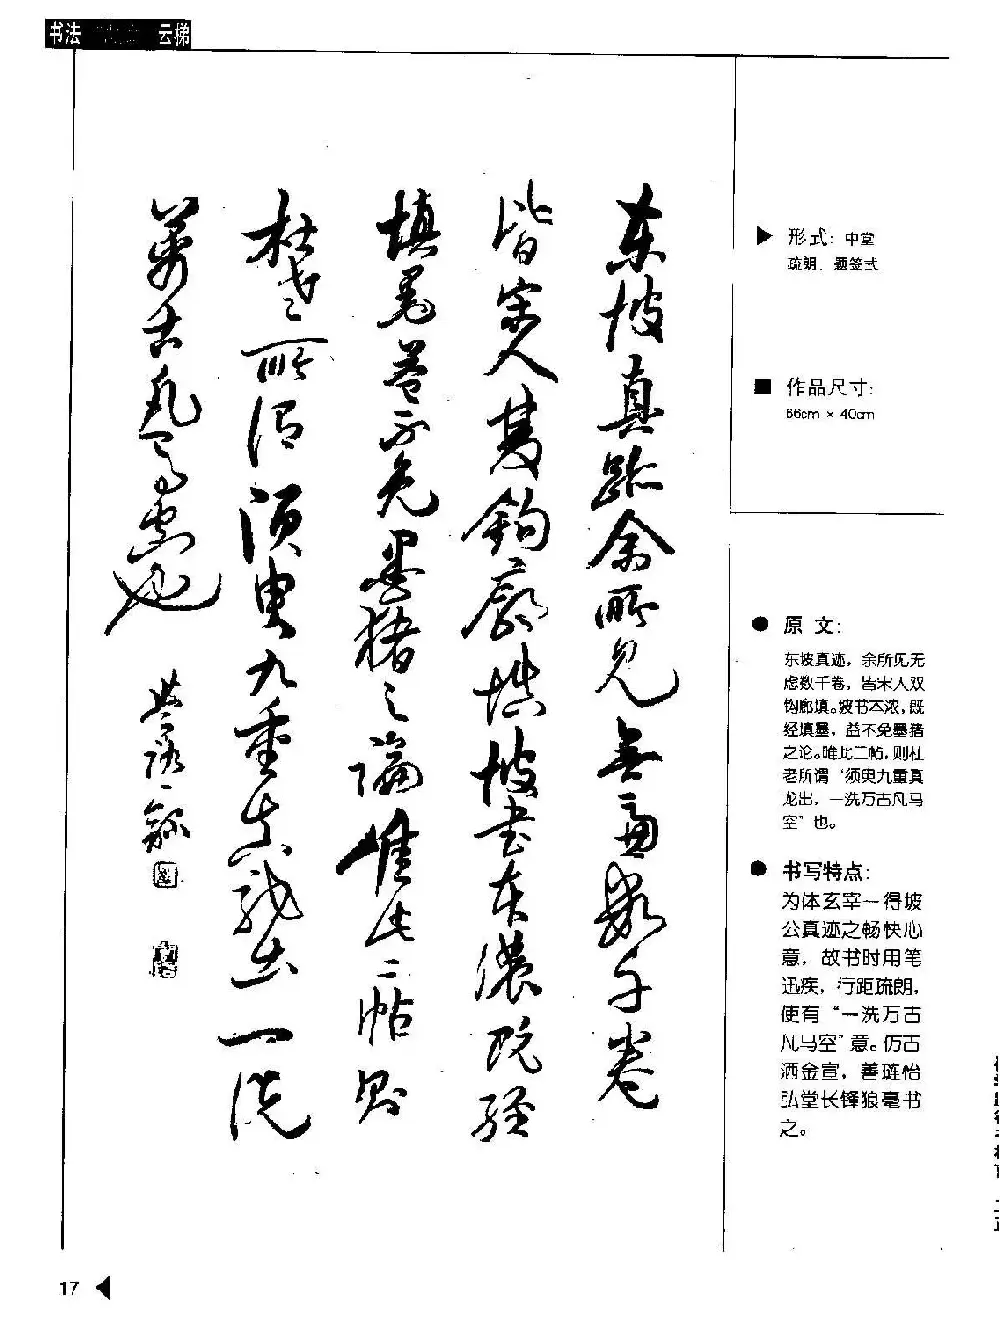 书法 云梯
东坡真跡余所见無慮数千卷
皆宋人双鈎廓填坡書本濃既经
填墨益不免墨猪之論惟此二帖则
杜老所谓须臾九重真龙出一洗
萬古凡马空也
形式：中堂
疏朗、题签式
作品尺寸：
66cm × 40cm
原文：
东坡真迹，余所见无
虑数千卷，皆宋人双
钩廓填。坡书本浓，既
经填墨，益不免墨猪
之论。唯此二帖，则杜
老所谓“须臾九重真
龙出，一洗万古凡马
空”也。
书写特点：
为体玄宰一得坡
公真迹之畅快心
意，故书时用笔
迅疾，行距疏朗，
使有“一洗万古
凡马空”意。仿古
洒金宣，善琏怡
弘堂长锋狼毫书
之。
17